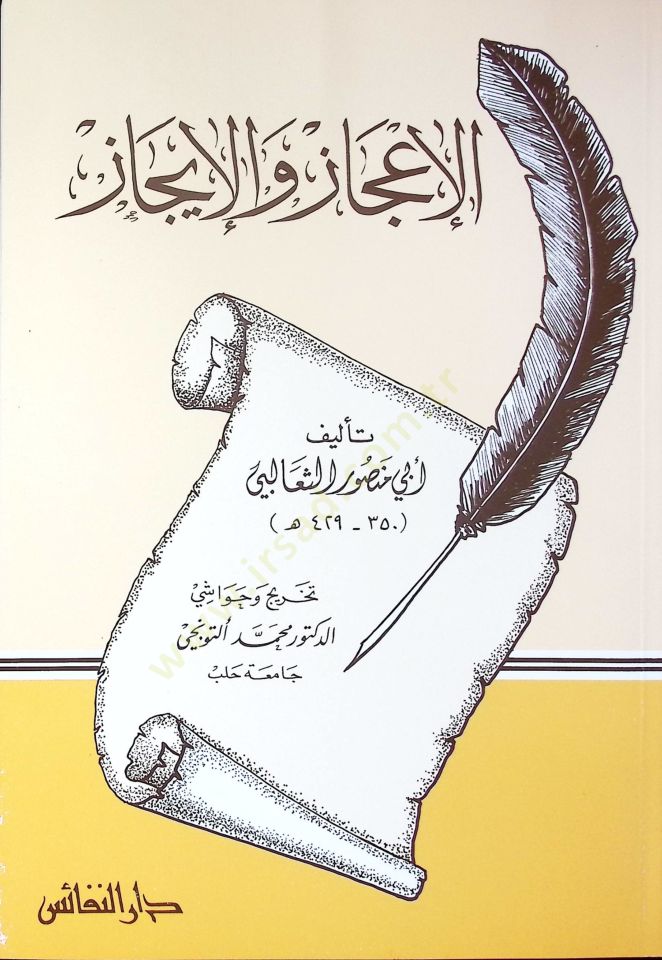 الإعجاز والإيجاز
تأليف
أبي منصور الثعالبي
(٣٥٠ - ٤٢٩ هـ)
تخريج وحواشي
الدكتور محمد التونجي
جامعة حلب
www.irsad.com.tr
دار النفائس